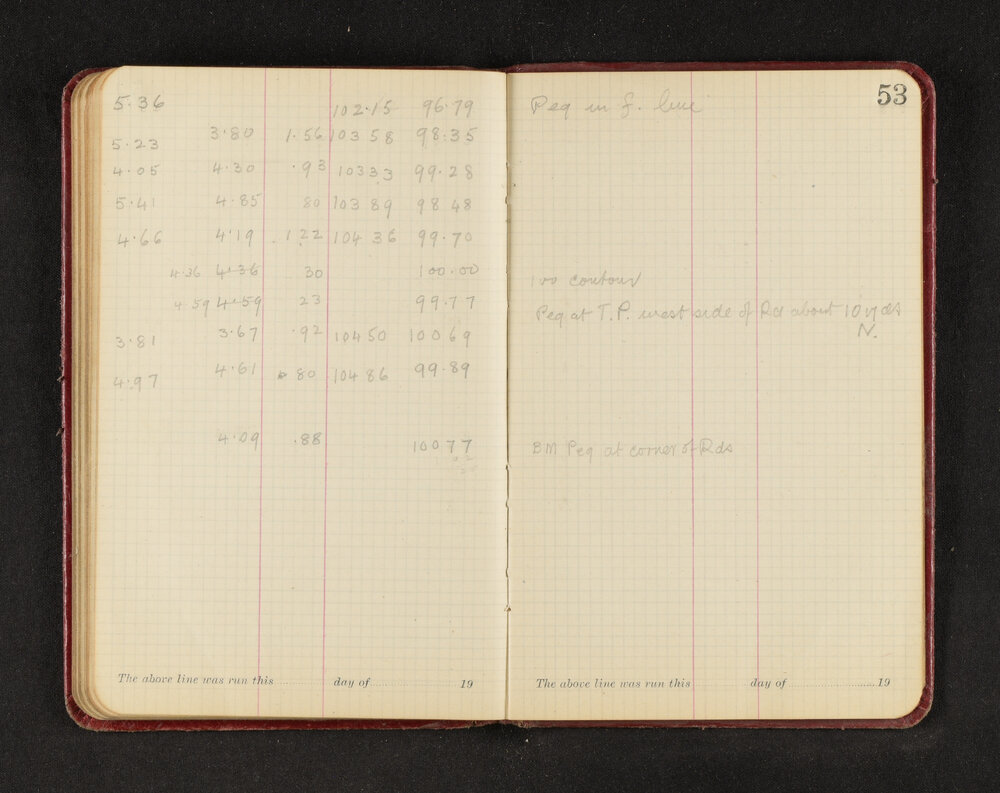 5.36 102.15 96.79
5.23 3.80 1.56 103 58 98.35
4.05 4.30 .93 10333 99.28
5.41 4.85 80 103 89 98 48
4.66 4.19 1.22 104 36 99.70
4.36 4.36 30 100.00
4.59 4.59 23 99.77
3.81 3.67 .92 104 50 100 69
4.97 4.61 80 104 86 99.89
4.09 .88 100 77
The above line was run this day of 19
53
Peg in f. line
100 contour
Peg at T.P. west side of Rd about 10 yds
N.
BM Peg at corner of Rds
The above line was run this day of 19